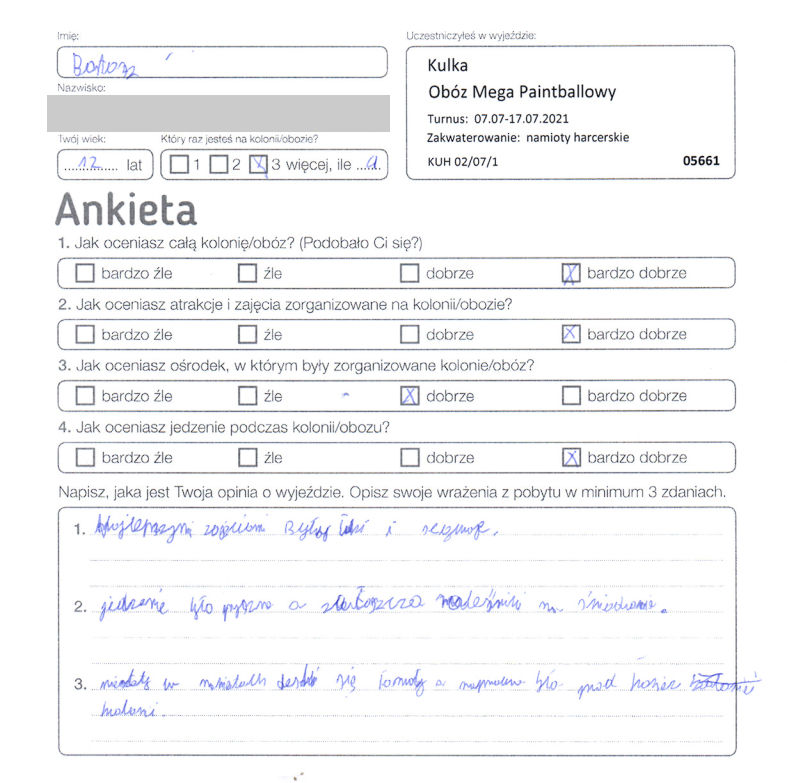 Imię:
Uczestniczyłeś w wyjeździe:
Bartosz
Kulka
Nazwisko:
Obóz Mega Paintballowy
Turnus: 07.07-17.07.2021
Twój wiek:
Który raz jesteś na kolonii/obozie?
Zakwaterowanie: namioty harcerskie
12 lat
1 2 3 więcej, ile
KUH 02/07/1
05661
Ankieta
1. Jak oceniasz całą kolonię/obóz? (Podobało Ci się?)
bardzo źle źle dobrze X bardzo dobrze
2. Jak oceniasz atrakcje i zajęcia zorganizowane na kolonii/obozie?
bardzo źle źle dobrze X bardzo dobrze
3. Jak oceniasz ośrodek, w którym były zorganizowane kolonie/obóz?
bardzo źle źle X dobrze bardzo dobrze
4. Jak oceniasz jedzenie podczas kolonii/obozu?
bardzo źle źle dobrze X bardzo dobrze
Napisz, jaka jest Twoja opinia o wyjeździe. Opisz swoje wrażenia z pobytu w minimum 3 zdaniach.
1. Najlepszymi zajęciami były i
2. jedzenie było pyszne a zwłaszcza naleśniki na śniadanie.
3. niestety w namiotach się a było pod koniec
koloni.